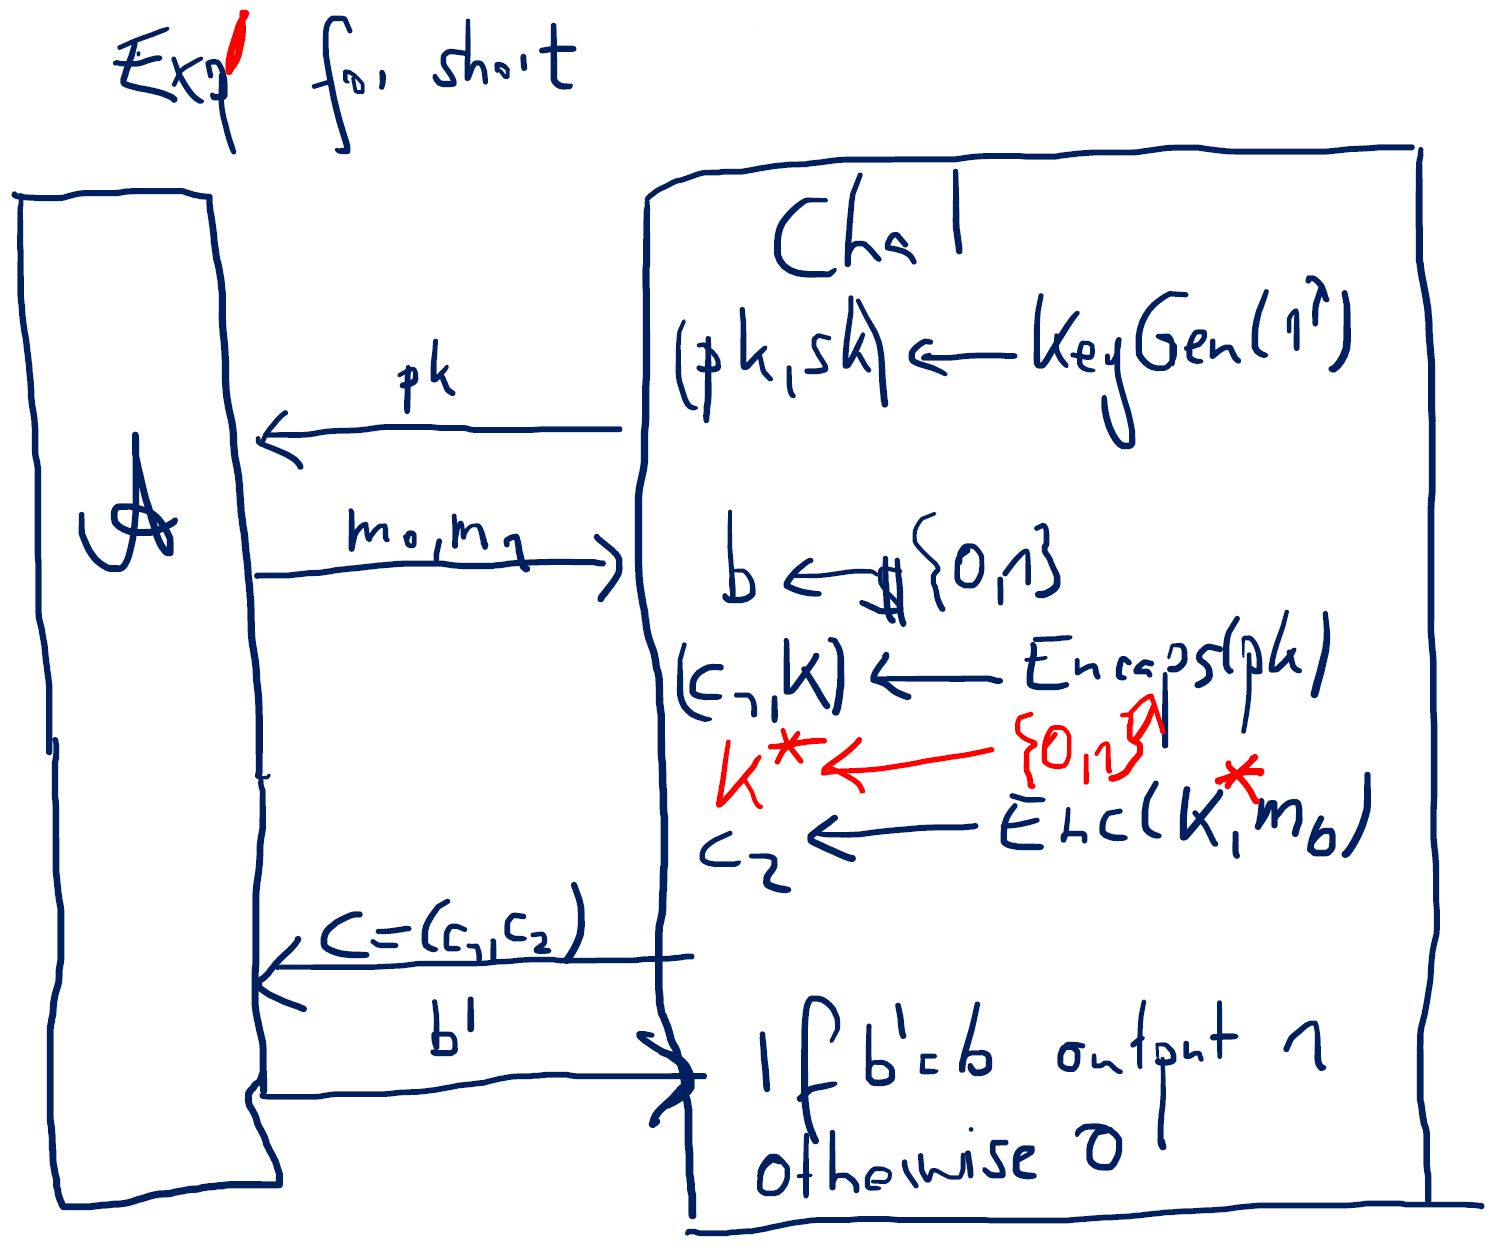 Exp' for short
Chal
(pk, sk) ← KeyGen(1^λ)
pk
A
m₀, m₁
b ←$ {0,1}
(c₁, K) ← Encaps(pk)
K* ← {0,1}^λ
c₂ ← Enc(K*, m_b)
C = (c₁, c₂)
b'
If b' = b output 1
otherwise 0